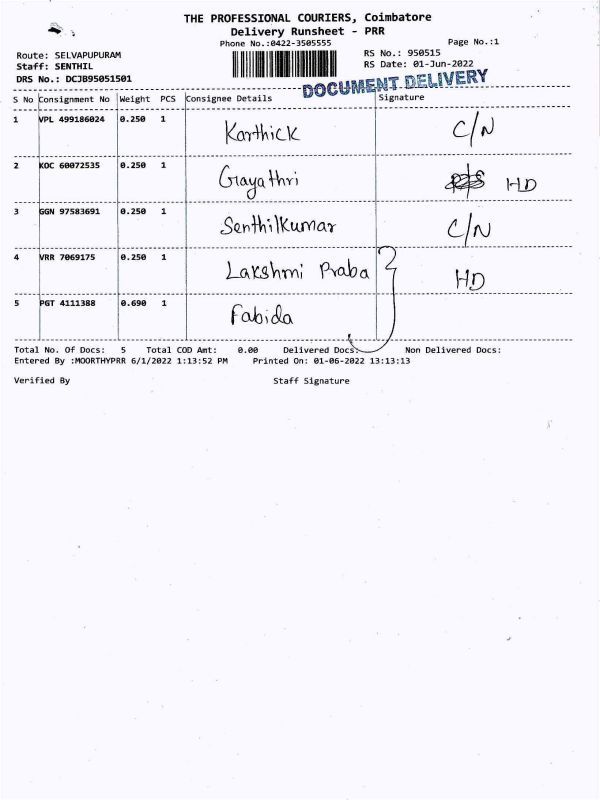 THE PROFESSIONAL COURIERS, Coimbatore
Delivery Runsheet - PRR
Phone No.:0422-3505555 Page No.:1
Route: SELVAPUPURAM RS No.: 950515
Staff: SENTHIL RS Date: 01-Jun-2022
DRS No.: DCJB95051501
DOCUMENT DELIVERY
S No Consignment No Weight PCS Consignee Details Signature
1 VPL 499186024 0.250 1 Karthick C/N
2 KOC 60072535 0.250 1 Gayathri HD
3 GGN 97583691 0.250 1 Senthilkumar C/N
4 VRR 7069175 0.250 1 Lakshmi Praba HD
5 PGT 4111388 0.690 1 Fabida
Total No. Of Docs: 5 Total COD Amt: 0.00 Delivered Docs: Non Delivered Docs:
Entered By :MOORTHYPRR 6/1/2022 1:13:52 PM Printed On: 01-06-2022 13:13:13
Verified By Staff Signature